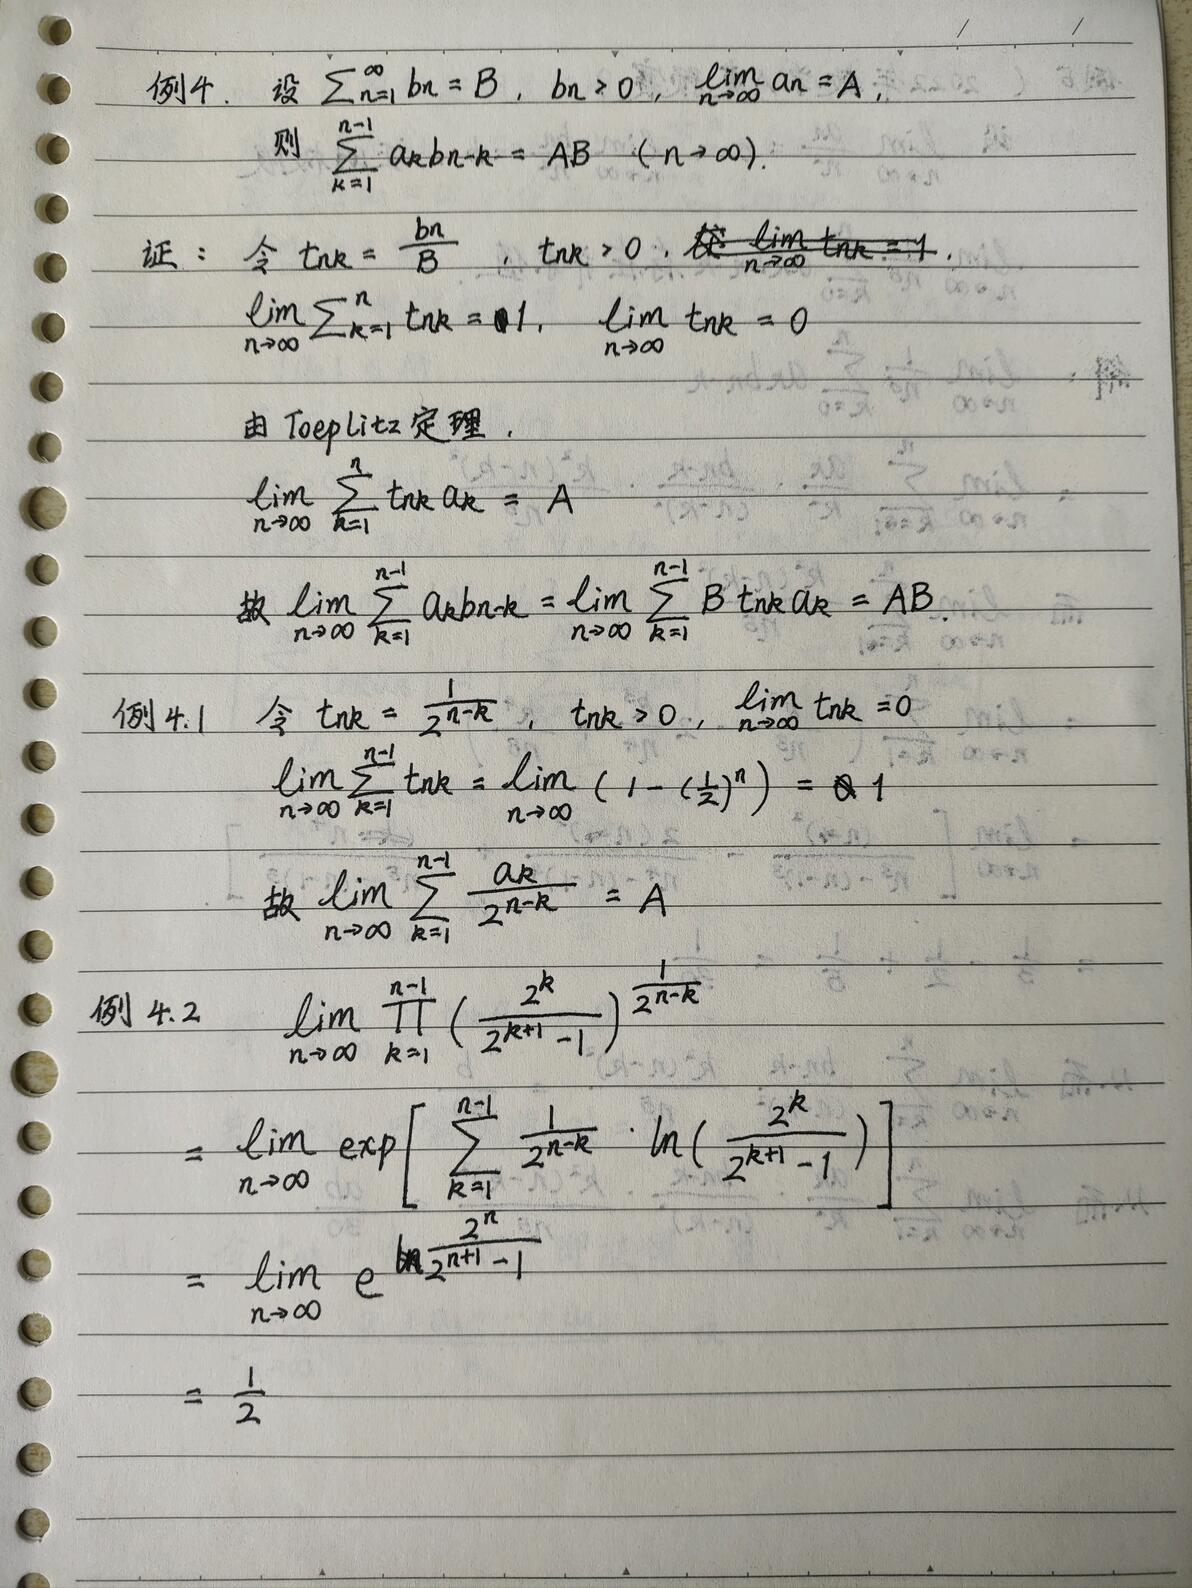 例4. 设 ∑_{n=1}^{∞} bn = B, bn > 0, lim_{n→∞} an = A,
则 ∑_{k=1}^{n-1} ak bn-k = AB (n→∞).
证: 令 tnk = bn/B, tnk > 0, lim_{n→∞} tnk = 1.
lim_{n→∞} ∑_{k=1}^{n} tnk = 1, lim_{n→∞} tnk = 0
由 Toeplitz 定理,
lim_{n→∞} ∑_{k=1}^{n} tnk ak = A
故 lim_{n→∞} ∑_{k=1}^{n-1} ak bn-k = lim_{n→∞} ∑_{k=1}^{n-1} B tnk ak = AB.
例4.1 令 tnk = 1/2^{n-k}, tnk > 0, lim_{n→∞} tnk = 0
lim_{n→∞} ∑_{k=1}^{n-1} tnk = lim_{n→∞} (1-(1/2)^n) = 1
故 lim_{n→∞} ∑_{k=1}^{n-1} ak/2^{n-k} = A
例4.2 lim_{n→∞} ∏_{k=1}^{n-1} (2^k/(2^{k+1}-1))^{1/2^{n-k}}
= lim_{n→∞} exp[∑_{k=1}^{n-1} 1/2^{n-k} · ln(2^k/(2^{k+1}-1))]
= lim_{n→∞} e^{ln 2^n/(2^{n+1}-1)}
= 1/2